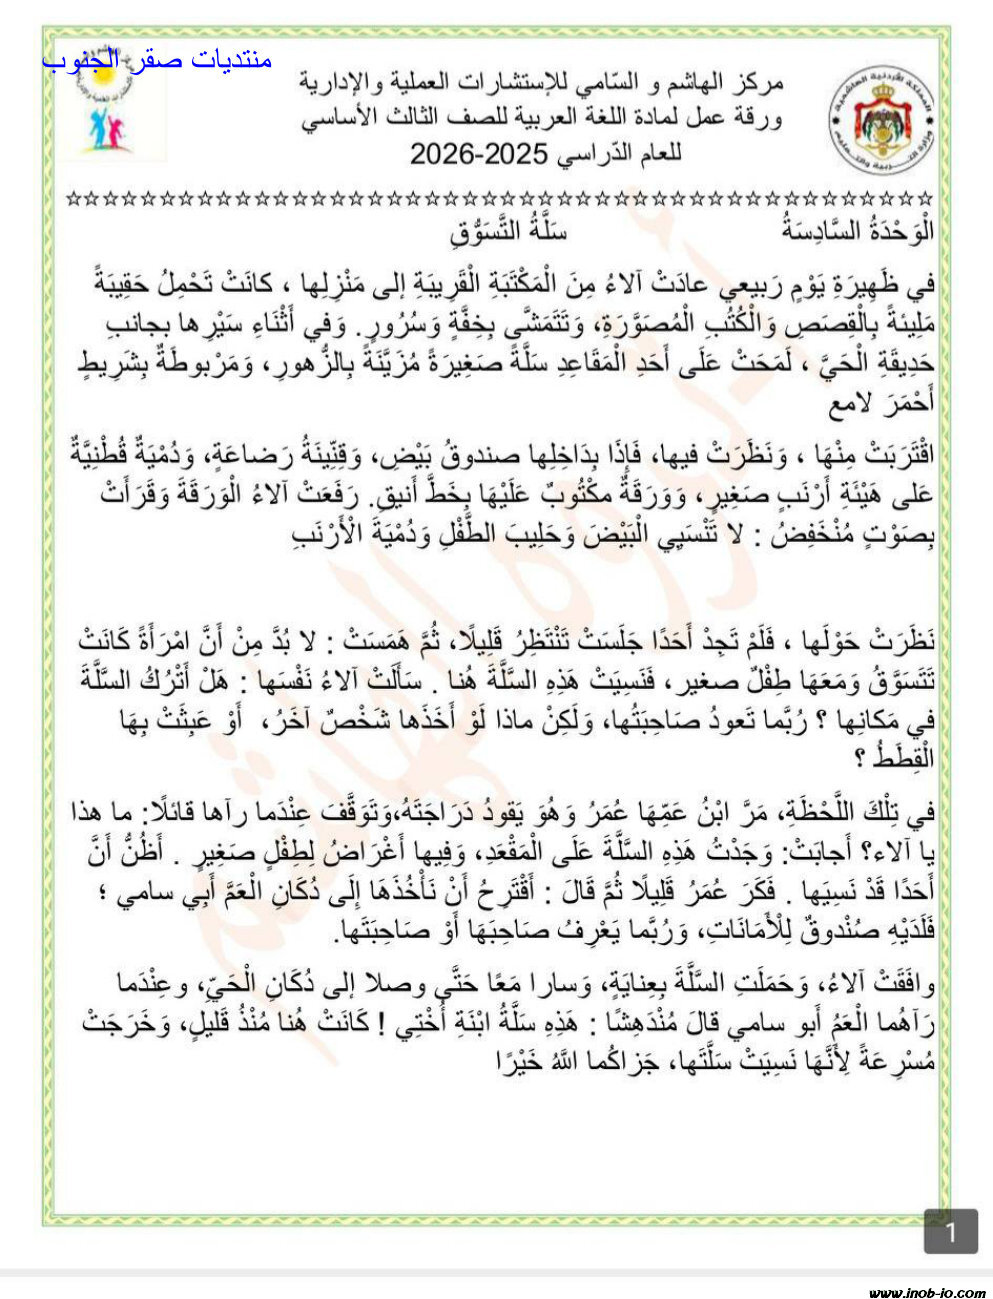 منتديات صقر الجنوب
مركز الهاشم و السّامي للإستشارات العملية والإدارية
ورقة عمل لمادة اللغة العربية للصف الثالث الأساسي
للعام الدّراسي 2025-2026
الْوَحْدَةُ السَّادِسَةُ سَلَّةُ التَّسَوُّقِ
في ظَهِيرَةِ يَوْمٍ رَبيعي عادَتْ آلاءُ مِنَ الْمَكْتَبَةِ الْقَرِيبَةِ إلى مَنْزِلِها ، كانَتْ تَحْمِلُ حَقِيبَةً
مَلِيئةً بِالْقِصَصِ وَالْكُتُبِ الْمُصَوَّرَةِ، وَتَتَمَشَّى بِخِفَّةٍ وَسُرُورٍ. وَفي أَثْنَاءِ سَيْرِها بجانبِ
حَدِيقَةِ الْحَيَّ ، لَمَحَتْ عَلَى أَحَدِ الْمَقَاعِدِ سَلَّةً صَغِيرَةً مُزَيَّنَةً بِالزُّهورِ، وَمَرْبوطَةٌ بِشَرِيطٍ
أَحْمَرَ لامع
اقْتَرَبَتْ مِنْهَا ، وَنَظَرَتْ فيها، فَإِذَا بِدَاخِلِها صندوقُ بَيْضِ، وَقِنِّينَةُ رَضاعَةٍ، وَدُمْيَةٌ قُطْنِيَّةٌ
عَلى هَيْئَةِ أَرْنَبٍ صَغِيرٍ، وَوَرَقَةٌ مكْتُوبٌ عَلَيْهَا بِخَطَّ أَنيقٍ. رَفَعَتْ آلاءُ الْوَرَقَةَ وَقَرَأَتْ
بِصَوْتٍ مُنْخَفِضُ : لا تَنْسَيِي الْبَيْضَ وَحَلِيبَ الطَّفْلِ وَدُمْيَةَ الْأَرْنَبِ
نَظَرَتْ حَوْلَها ، فَلَمْ تَجِدْ أَحَدًا جَلَسَتْ تَنْتَظِرُ قَلِيلًا، ثُمَّ هَمَسَتْ : لا بُدَّ مِنْ أَنَّ امْرَأَةً كَانَتْ
تَتَسَوَّقُ وَمَعَهَا طِفْلٌ صغير، فَنَسِيَتْ هَذِهِ السَّلَّةَ هُنا . سَأَلَتْ آلاءُ نَفْسَها : هَلْ أَتْرُكُ السَّلَّةَ
في مَكانِها ؟ رُبَّما تَعودُ صَاحِبَتُها، وَلَكِنْ ماذا لَوْ أَخَذَها شَخْصٌ آخَرُ، أَوْ عَبِثَتْ بِهَا
الْقِطَطُ ؟
في تِلْكَ اللَّحْظَةِ، مَرَّ ابْنُ عَمِّهَا عُمَرُ وَهُوَ يَقودُ دَرَاجَتَهُ،وَتَوَقَّفَ عِنْدَما رآها قائلًا: ما هذا
يا آلاء؟ أَجابَتْ: وَجَدْتُ هَذِهِ السَّلَّةَ عَلَى الْمَقْعَدِ، وَفِيها أَغْرَاضُ لِطِفْلٍ صَغِيرٍ . أَظُنُّ أَنَّ
أَحَدًا قَدْ نَسِيَها . فَكَرَ عُمَرُ قَلِيلًا ثُمَّ قَالَ : أَقْتَرِحُ أَنْ نَأْخُذَهَا إِلَى دُكَانِ الْعَمَّ أَبِي سامي ؛
فَلَدَيْهِ صُنْدوقٌ لِلْأَمَانَاتِ، وَرُبَّما يَعْرِفُ صَاحِبَهَا أَوْ صَاحِبَتَها.
وافَقَتْ آلاءُ، وَحَمَلَتِ السَّلَّةَ بِعِنايَةٍ، وَسارا مَعًا حَتَّى وصلا إلى دُكَانِ الْحَيِّ، وعِنْدَما
رَآهُما الْعَمُ أَبو سامي قالَ مُنْدَهِشًا : هَذِهِ سَلَّةُ ابْنَةِ أُخْتِي ! كَانَتْ هُنا مُنْذُ قَليلٍ، وَخَرَجَتْ
مُسْرِعَةً لِأَنَّهَا نَسِيَتْ سَلَّتَها، جَزاكُما اللَّهُ خَيْرًا
1
www.jnob-jo.com